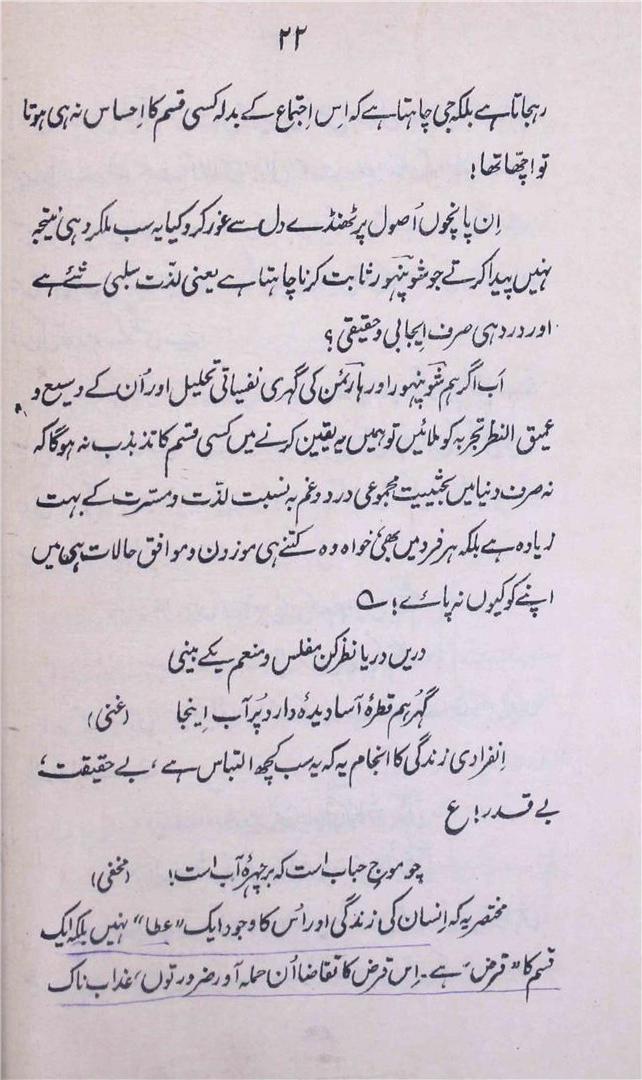 ۲۲
رہجاتا ہے بلکہ جی چاہتا ہے کہ اِس اِجتماع کے بدلہ کسی قسم کا اِحساس نہ ہی ہوتا
تو اچّھا تھا!
اِن پانچوں اُصول پر ٹھنڈے دل سے غور کرو کیا یہ سب ملکر وہی نتیجہ
نہیں پیدا کرتے جو شوپنہور ثابت کرنا چاہتا ہے یعنی لذّت سلبی شئے ہے
اور درد ہی صرف اِیجابی و حقیقی؟
اَب اگر ہم شوپنہور اور ہارٹمن کی گہری نفسیاتی تحلیل اور اُن کے وسیع و
عمیق النظر تجربہ کو ملائیں تو ہمیں یہ یقین کرنے میں کسی قسم کا تذبذب نہ ہوگا کہ
نہ صرف دنیا میں بحیثیت مجموعی درد و غم بہ نسبت لذّت و مسرّت کے بہت
زیادہ ہے بلکہ ہر فرد میں بھی، خواہ وہ کتنے ہی موزون و موافق حالات ہی میں
اپنے کو کیوں نہ پائے!
دریں دریا نظر کن مفلس و منعم یکے بینی
گہُر ہم قطرۂ آسا دیدۂ دارد پُر آب اِینجا (غنی)
اِنفرادی زندگی کا انجام یہ کہ یہ سب کچھ التباس ہے، بے حقیقت،
بے قدر! ع
چو موجِ حباب است کہ بر چہرۂ آب است! (مخفی)
مختصر یہ کہ اِنسان کی زندگی اور اُس کا وجود ایک "عطا" نہیں بلکہ ایک
قسم کا "قرض" ہے۔ اِس قرض کا تقاضا اُن حملہ آور ضرورتوں، عذاب ناک